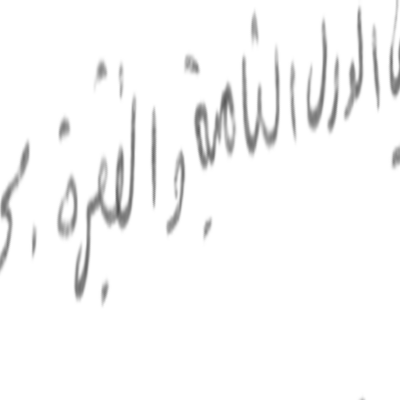 الدول النامية و الفقيرة .